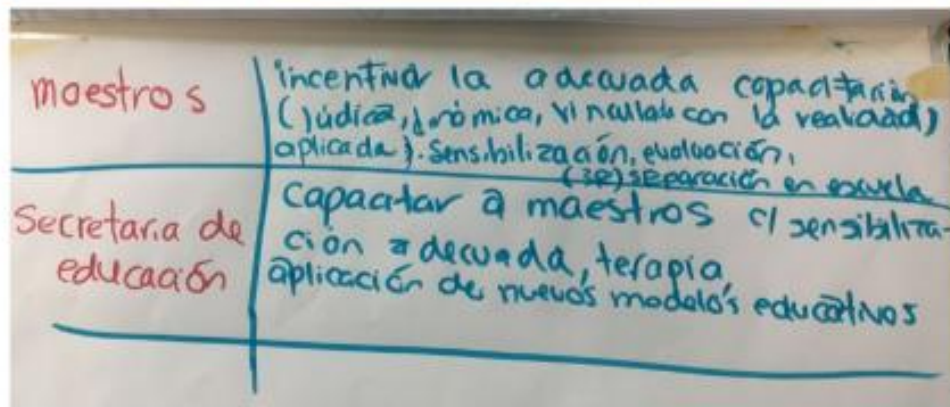 maestros
incentivar la adecuada capacitación
(lúdica, dinámica, vinculada con la realidad,
aplicada). Sensibilización, evaluación,
separación en escuela
Secretaria de
educación
capacitar a maestros c/ sensibiliza-
ción adecuada, terapia
aplicación de nuevos modelos educativos